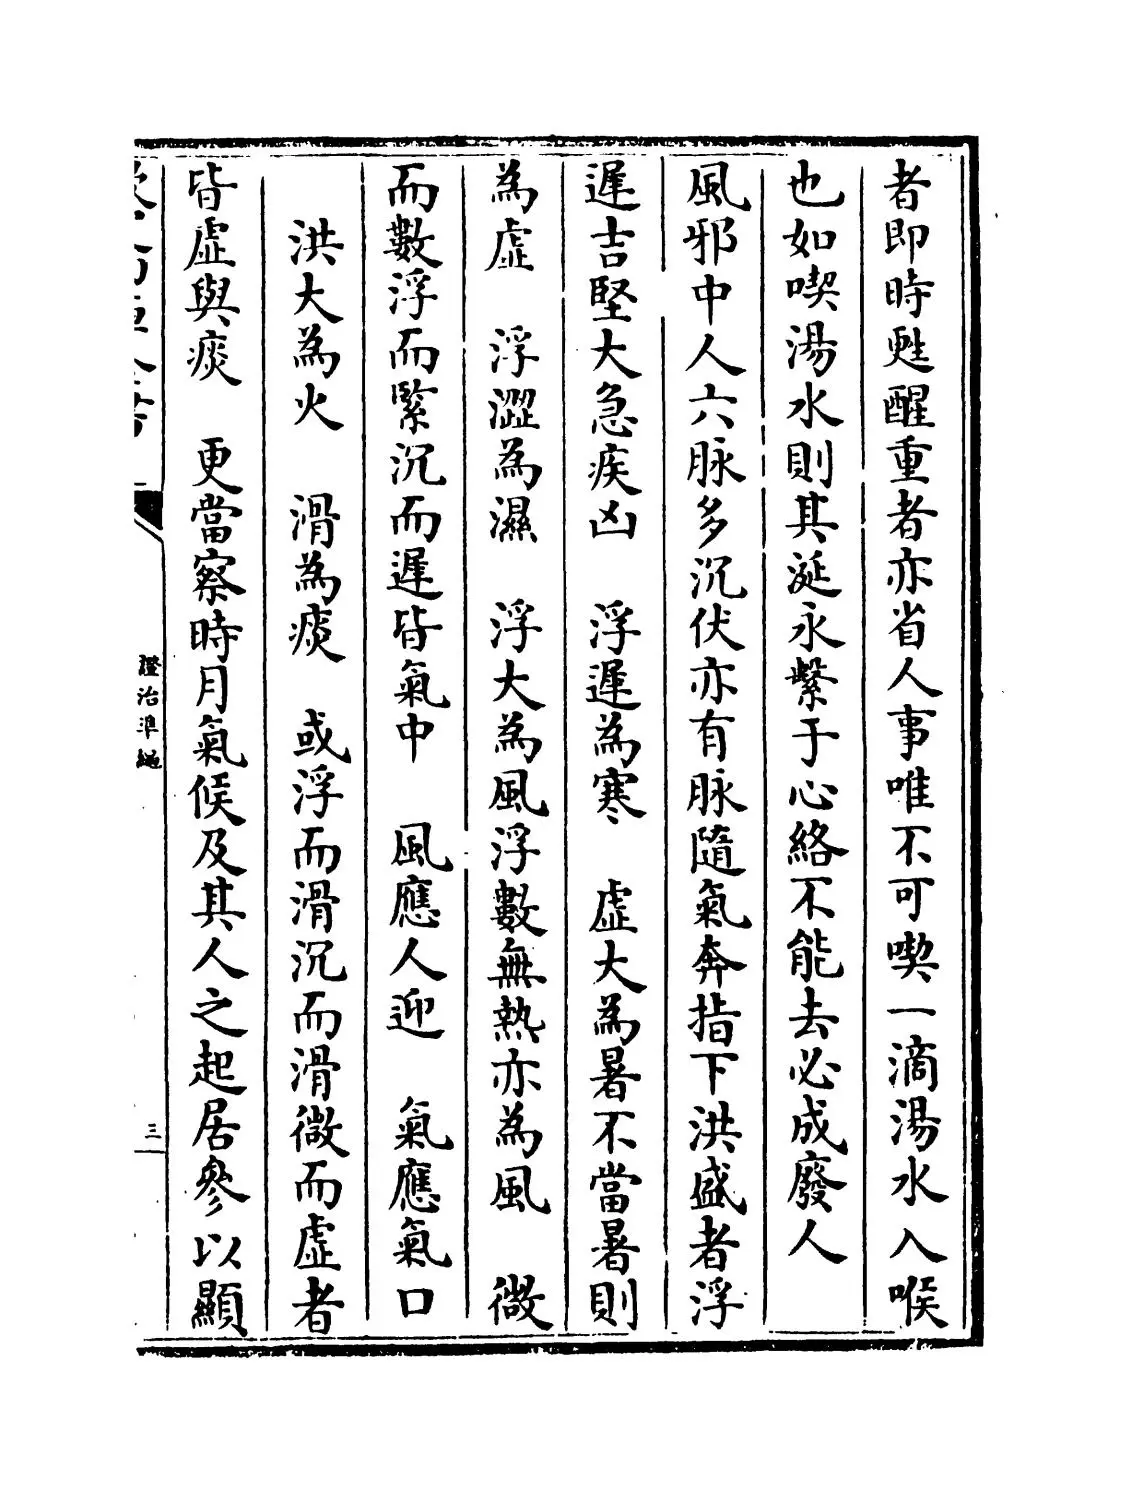 者即時甦醒重者亦省人事唯不可喫一滴湯水入喉
也如喫湯水則其涎永繫于心絡不能去必成廢人
風邪中人六脉多沉伏亦有脉隨氣奔指下洪盛者浮
遲吉堅大急疾凶　浮遲為寒　虛大為暑不當暑則
為虛　浮澀為濕　浮大為風浮數無熱亦為風　微
而數浮而緊沉而遲皆氣中　風應人迎　氣應氣口
洪大為火　滑為痰　或浮而滑沉而滑微而虛者
皆虛與痰　更當察時月氣候及其人之起居參以顯
證治準繩
三